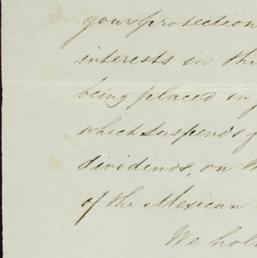 your protection
interests in
being placed in
which suspends
dividends, on
of the Mexican
We